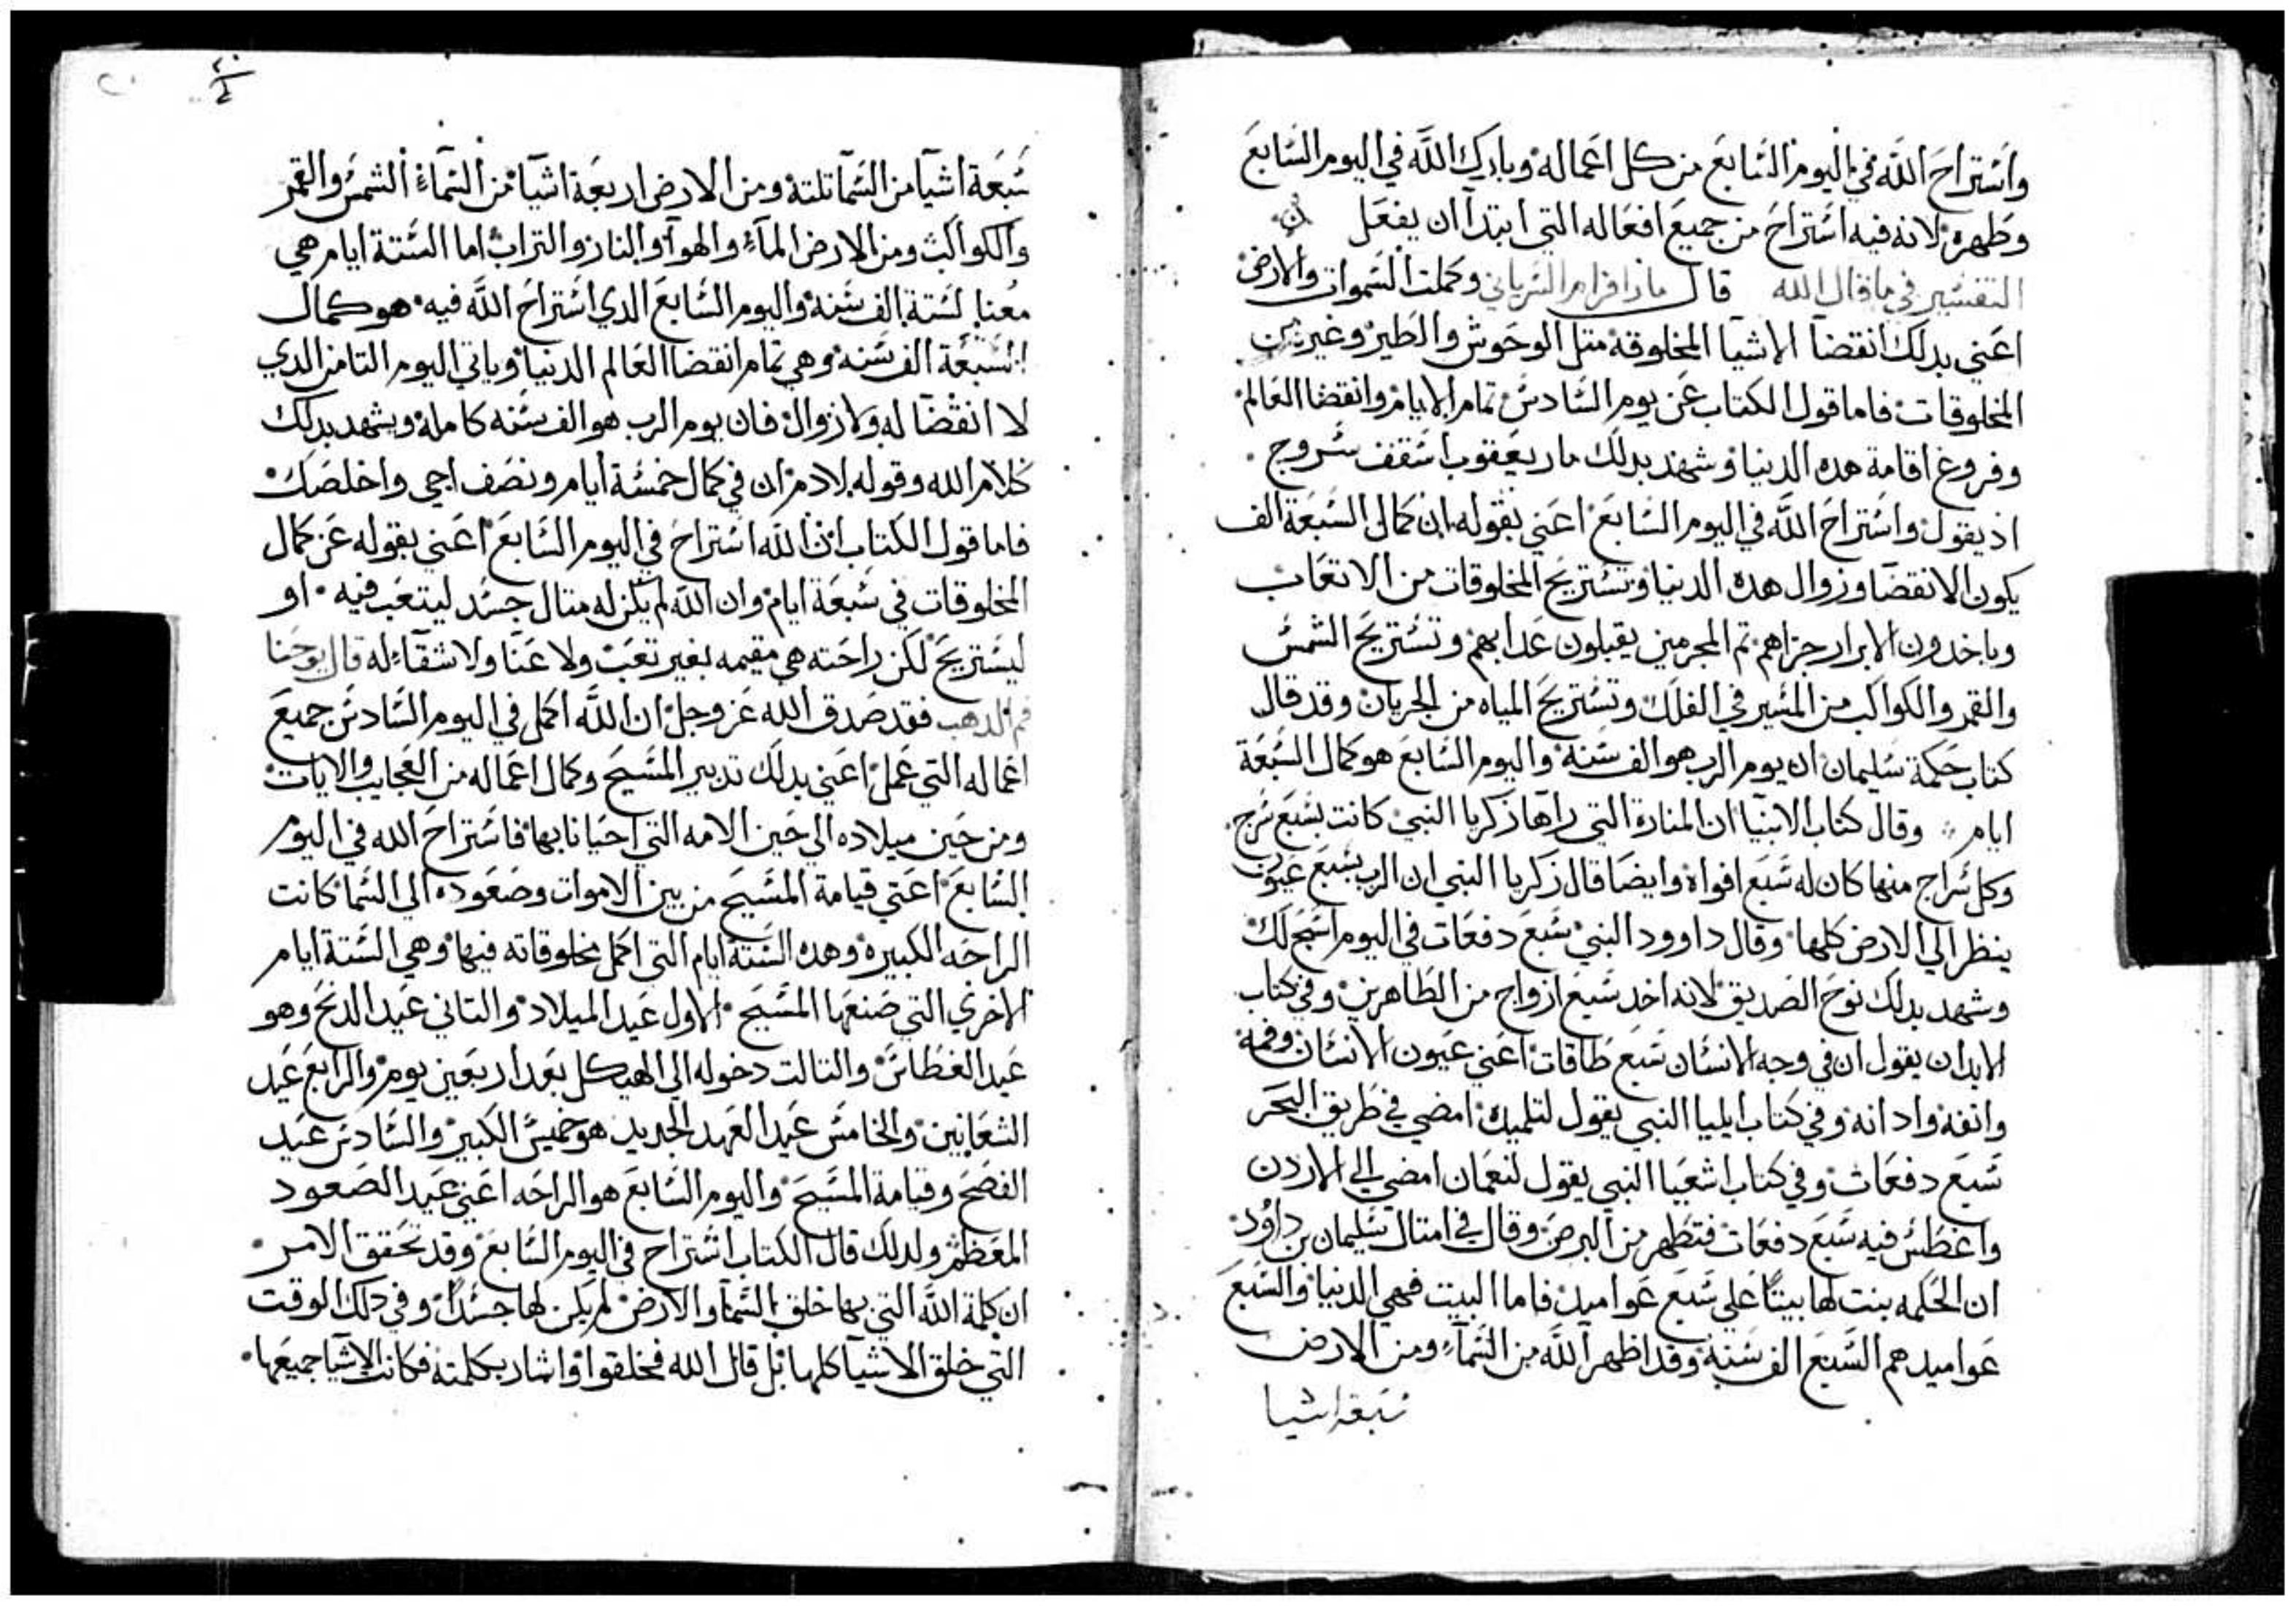 واستراح الله في اليوم السابع من كل اعماله وبارك الله في اليوم السابع
وطهره لانه فيه استراح من جميع افعاله التي ابتدا ان يفعل
التفسير في ما قال الله قال مار افرام السرياني وكملت السموات والارض
اعني بدلك انقضا الاشيا المخلوقة متل الوحوش والطير وغير من
المخلوقات فاما قول الكتاب عن يوم السادس تمام الايام وانقضا العالم
وفروغ اقامة هده الدنيا وشهد بدلك مار يعقوب اسقف سروج
اذ يقول واستراح الله في اليوم السابع اعني بقوله ان كمال السبعة الف
يكون الانقضا وزوال هده الدنيا وتستريح المخلوقات من الاتعاب
وياخدون الابرار جزاهم تم المجرمين يقبلون عدابهم وتستريح الشمس
والقمر والكواكب من المسير في الفلك وتستريح المياه من الجريان وقد قال
كتاب حكمة سليمان ان يوم الرب هو الف سنة واليوم السابع هو كمال السبعة
ايام وقال كتاب الانبيا ان المنارة التي راها زكريا النبي كانت بسبع سرج
وكل سراج منها كان له سبع افواه وايضا قال زكريا النبي ان الرب بسبع عيون
ينظر الي الارض كلها وقال داوود النبي سبع دفعات في اليوم اسبح لك
وشهد بدلك نوح الصديق لانه اخد سبع ازواج من الطاهرين وفي كتاب
الابدان يقول ان في وجه الانسان سبع طاقات اعني عيون الانسان وفمه
وانفه وادانه وفي كتاب ايليا النبي يقول لتلميده امضي في طريق البحر
سبع دفعات وفي كتاب اشعيا النبي يقول لنعمان امضي الي الاردن
واغطس فيه سبع دفعات فتطهر من البرص وقال في امتال سليمان بن داود
ان الحكمه بنت لها بيتا علي سبع عواميد فاما البيت فهي الدنيا والسبع
عواميد هم السبع الف سنة وقد اظهر الله من السماء ومن الارض
سبعة اشيا
سبعة اشيا من السما تلتة ومن الارض اربعة اشيا من السماء الشمس والقمر
والكواكب ومن الارض الماء والهوا والنار والتراب اما الستة ايام هي
معنا لستة الف سنه واليوم السابع الدي استراح الله فيه هو كمال
السبعة الف سنه وهي تمام انقضا العالم الدنيا وياتي اليوم التامن الدي
لا انقضا له ولا زوال فان يوم الرب هو الف سنه كامله ويشهد بدلك
كلام الله وقوله لادم ان في كمال خمسة ايام ونصف اجي واخلصك
فاما قول الكتاب ان الله استراح في اليوم السابع اعني بقوله عن كمال
المخلوقات في سبعة ايام وان الله لم يكن له متال جسد ليتعب فيه او
ليستريح لكن راحته هي مقيمه بغير تعب ولا عنا ولا شقاء له قال يوحنا
فم الدهب فقد صدق الله عز وجل ان الله اكمل في اليوم السادس جميع
اعماله التي عمل اعني بدلك تدبير المسيح وكمال اعماله من العجايب والايات
ومن حين ميلاده الي حين الامه التي احيانا بها فاستراح الله في اليوم
السابع اعني قيامة المسيح من بين الاموات وصعوده الي السما كانت
الراحه الكبيره وهده الستة ايام التي اكمل مخلوقاته فيها وهي الستة ايام
الاخري التي صنعها المسيح الاول عيد الميلاد والتاني عيد الدنح وهو
عيد الغطاس والتالت دخوله الي الهيكل بعد اربعين يوم والرابع عيد
الشعانين والخامس عيد العهد الجديد هو خميس الكبير والسادس عيد
الفصح وقيامة المسيح واليوم السابع هو الراحه اعني عيد الصعود
المعظم ولدلك قال الكتاب استراح في اليوم السابع وقد تحقق الامر
ان كلمة الله التي بها خلق السما والارض لم يكن لها جسدا وفي دلك الوقت
التي خلق الاشيا كلها بل قال الله فخلقوا واشار بكلمته فكانت الاشيا جميعها